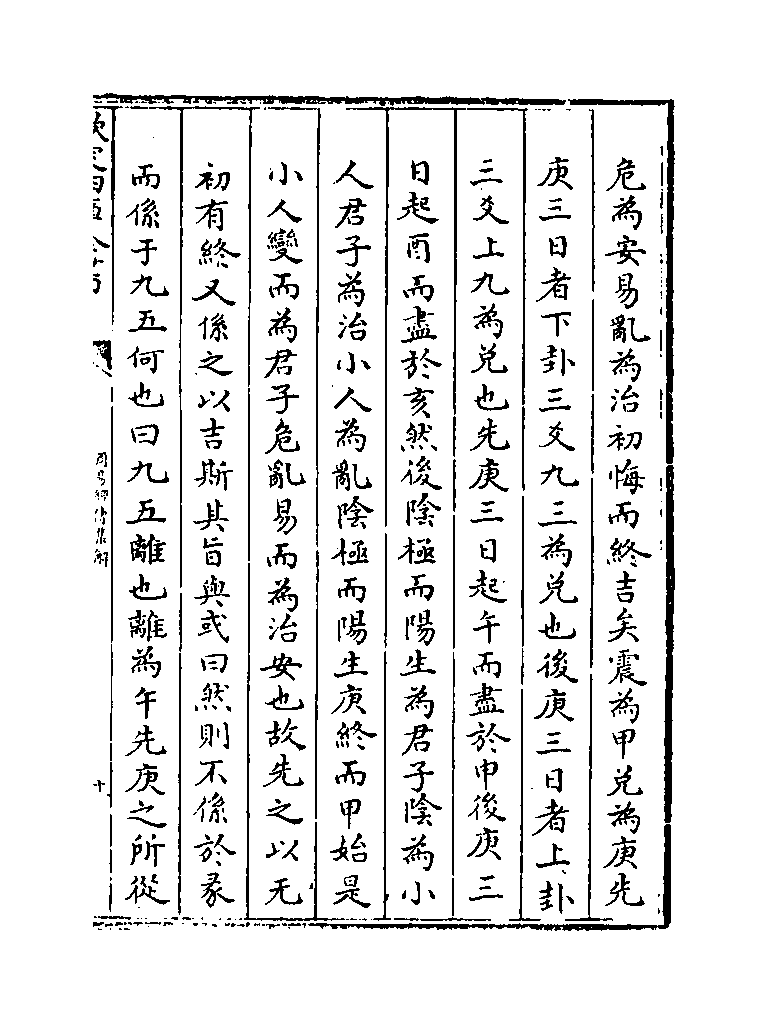 危為安易亂為治初悔而終吉矣震為甲兌為庚先
庚三日者下卦三爻九三為兌也後庚三日者上卦
三爻上九為兌也先庚三日起午而盡於申後庚三
日起酉而盡於亥然後陰極而陽生為君子陰為小
人君子為治小人為亂陰極而陽生庚終而甲始是
小人變而為君子危亂易而為治安也故先之以无
初有終又係之以吉斯其旨與或曰然則不係於彖
而係于九五何也曰九五離也離為午先庚之所從
欽定四庫全書
十